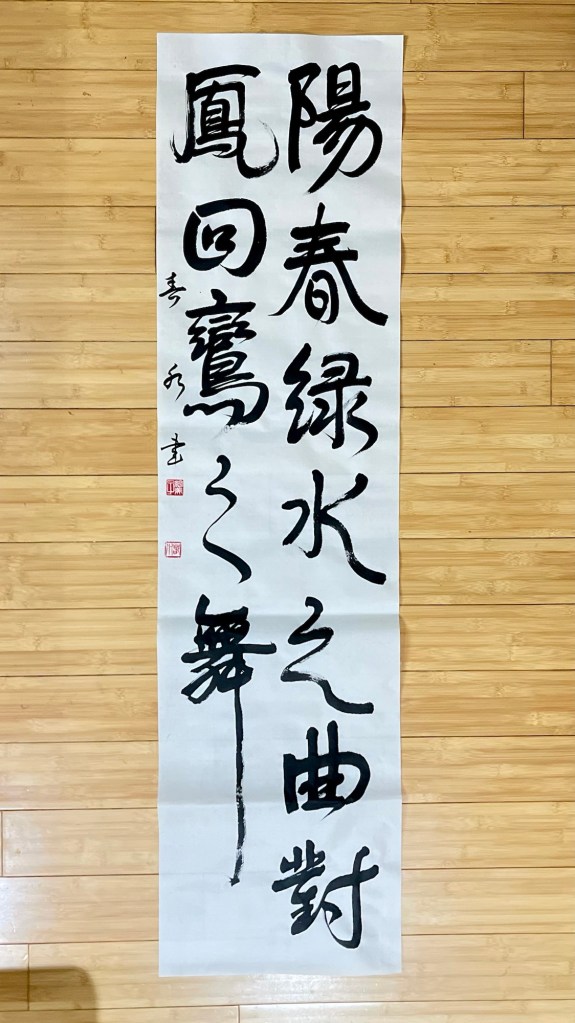 陽春緑水之曲對
鳳回鸞之舞
春水書